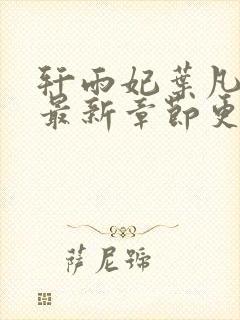 轩雨妃葉凡
最新章節更
薩尼號